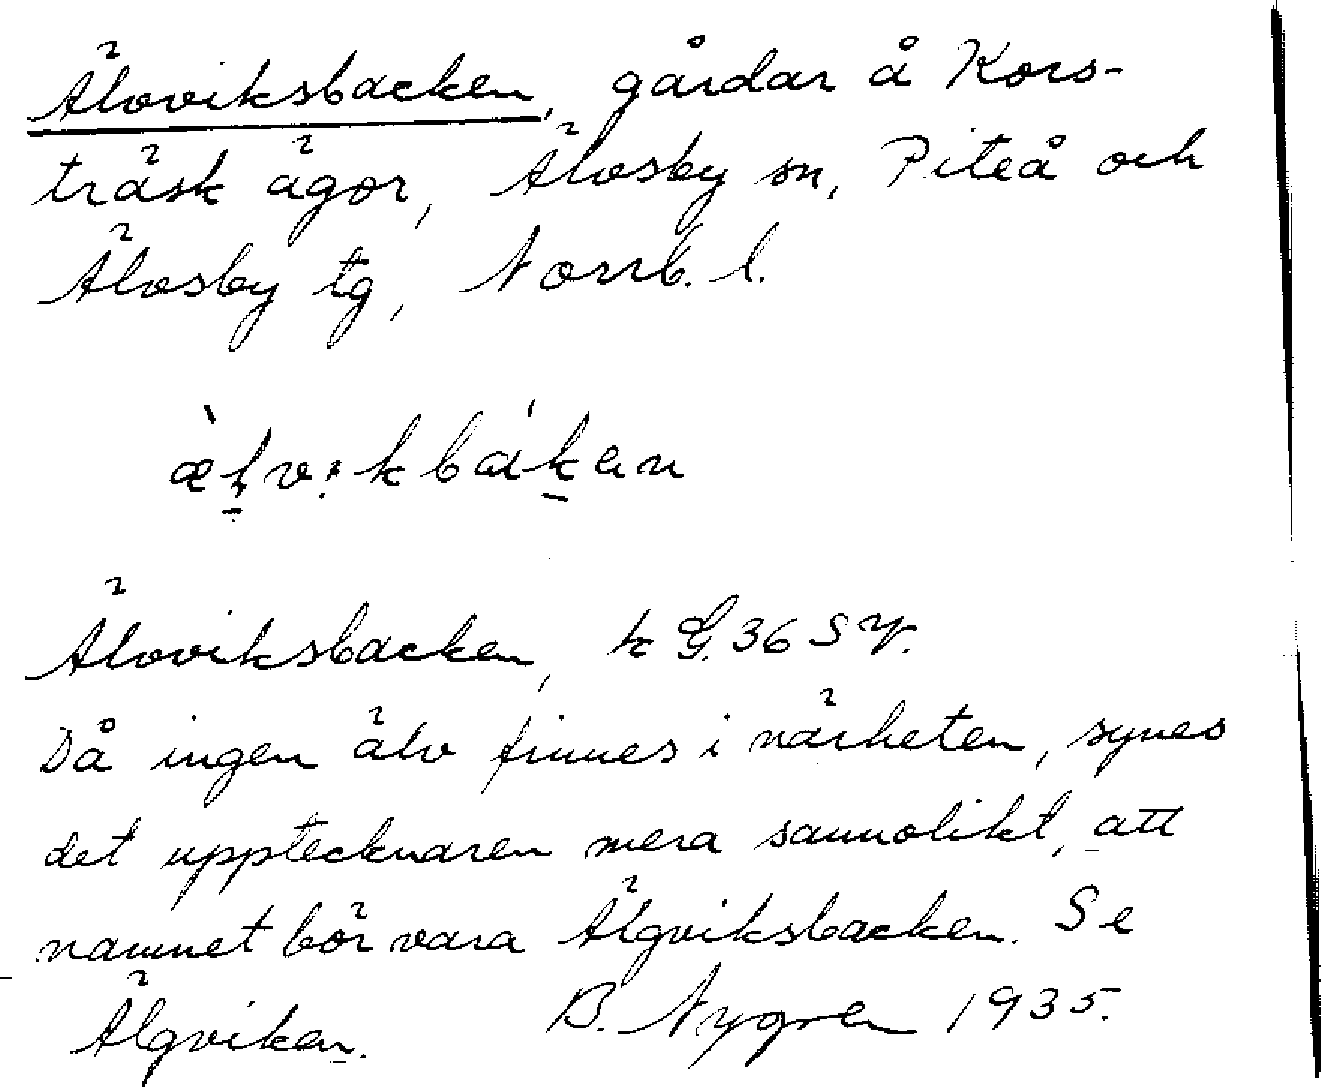 Älvviksbacken, gårdar å Kors-
träsk ägor, Älvsby sn, Piteå och
Älvsby tg, Norrb. l.
Älvviksbacken, k G. 36 SV.
Då ingen älv finnes i närheten, synes
det upptecknaren mera sannolikt, att
namnet bör vara Älgviksbacken. Se
Älgviken. B. Nygren 1935.